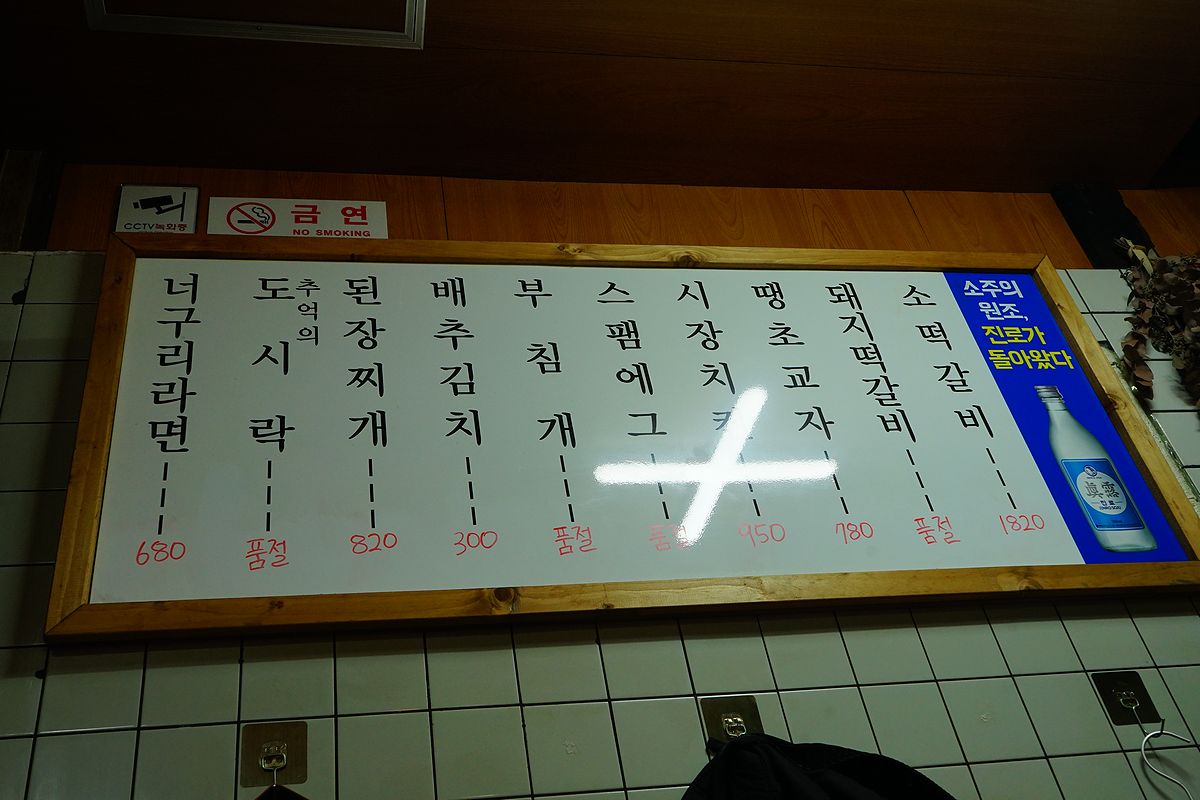 CCTV녹화중
금연
NO SMOKING
너구리라면 680
추억의
도시락 품절
된장찌개 820
배추김치 300
부침개 품절
스팸에그 품절
시장치킨 950
땡초교자 780
돼지떡갈비 품절
소떡갈비 1820
소주의
원조,
진로가
돌아왔다
眞露
진로